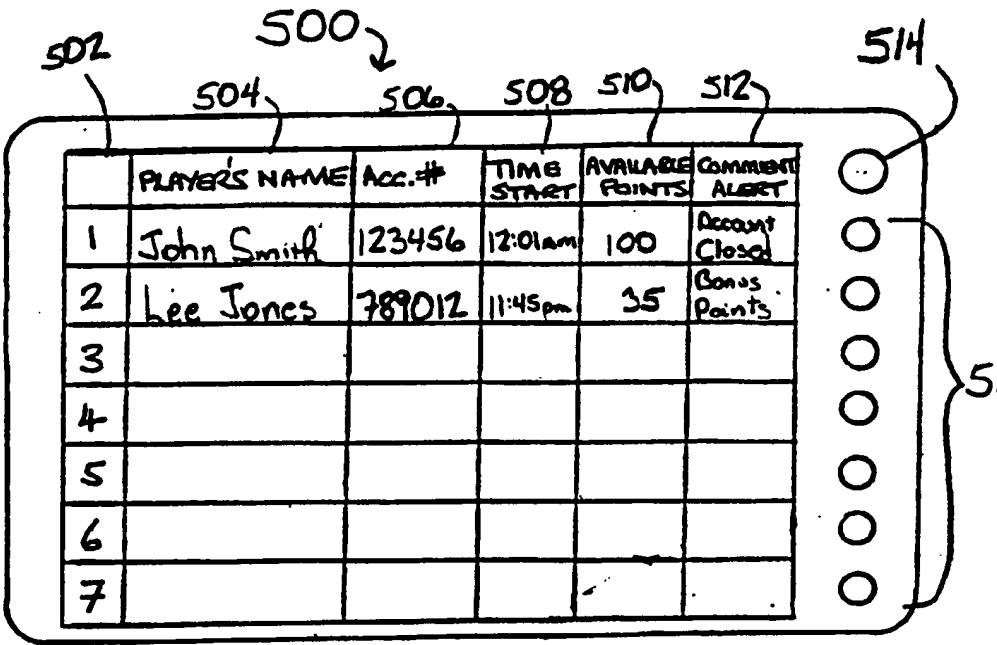 500
502
514
504
506
508
510
512
PLAYER'S NAME
Acc.#
TIME
START
AVAILABLE
POINTS
COMMENT
ALERT
1
John Smith
123456
12:01am
100
Account
Closed
2
Lee Jones
789012
11:45pm
35
Bonus
Points
3
4
5
6
7